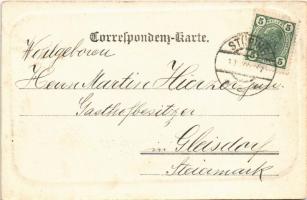 Correspondenz-Karte.
Wohlgeboren
Herrn Martin
Gasthofbesitzer
in Gleisdorf
Steiermark
5 5